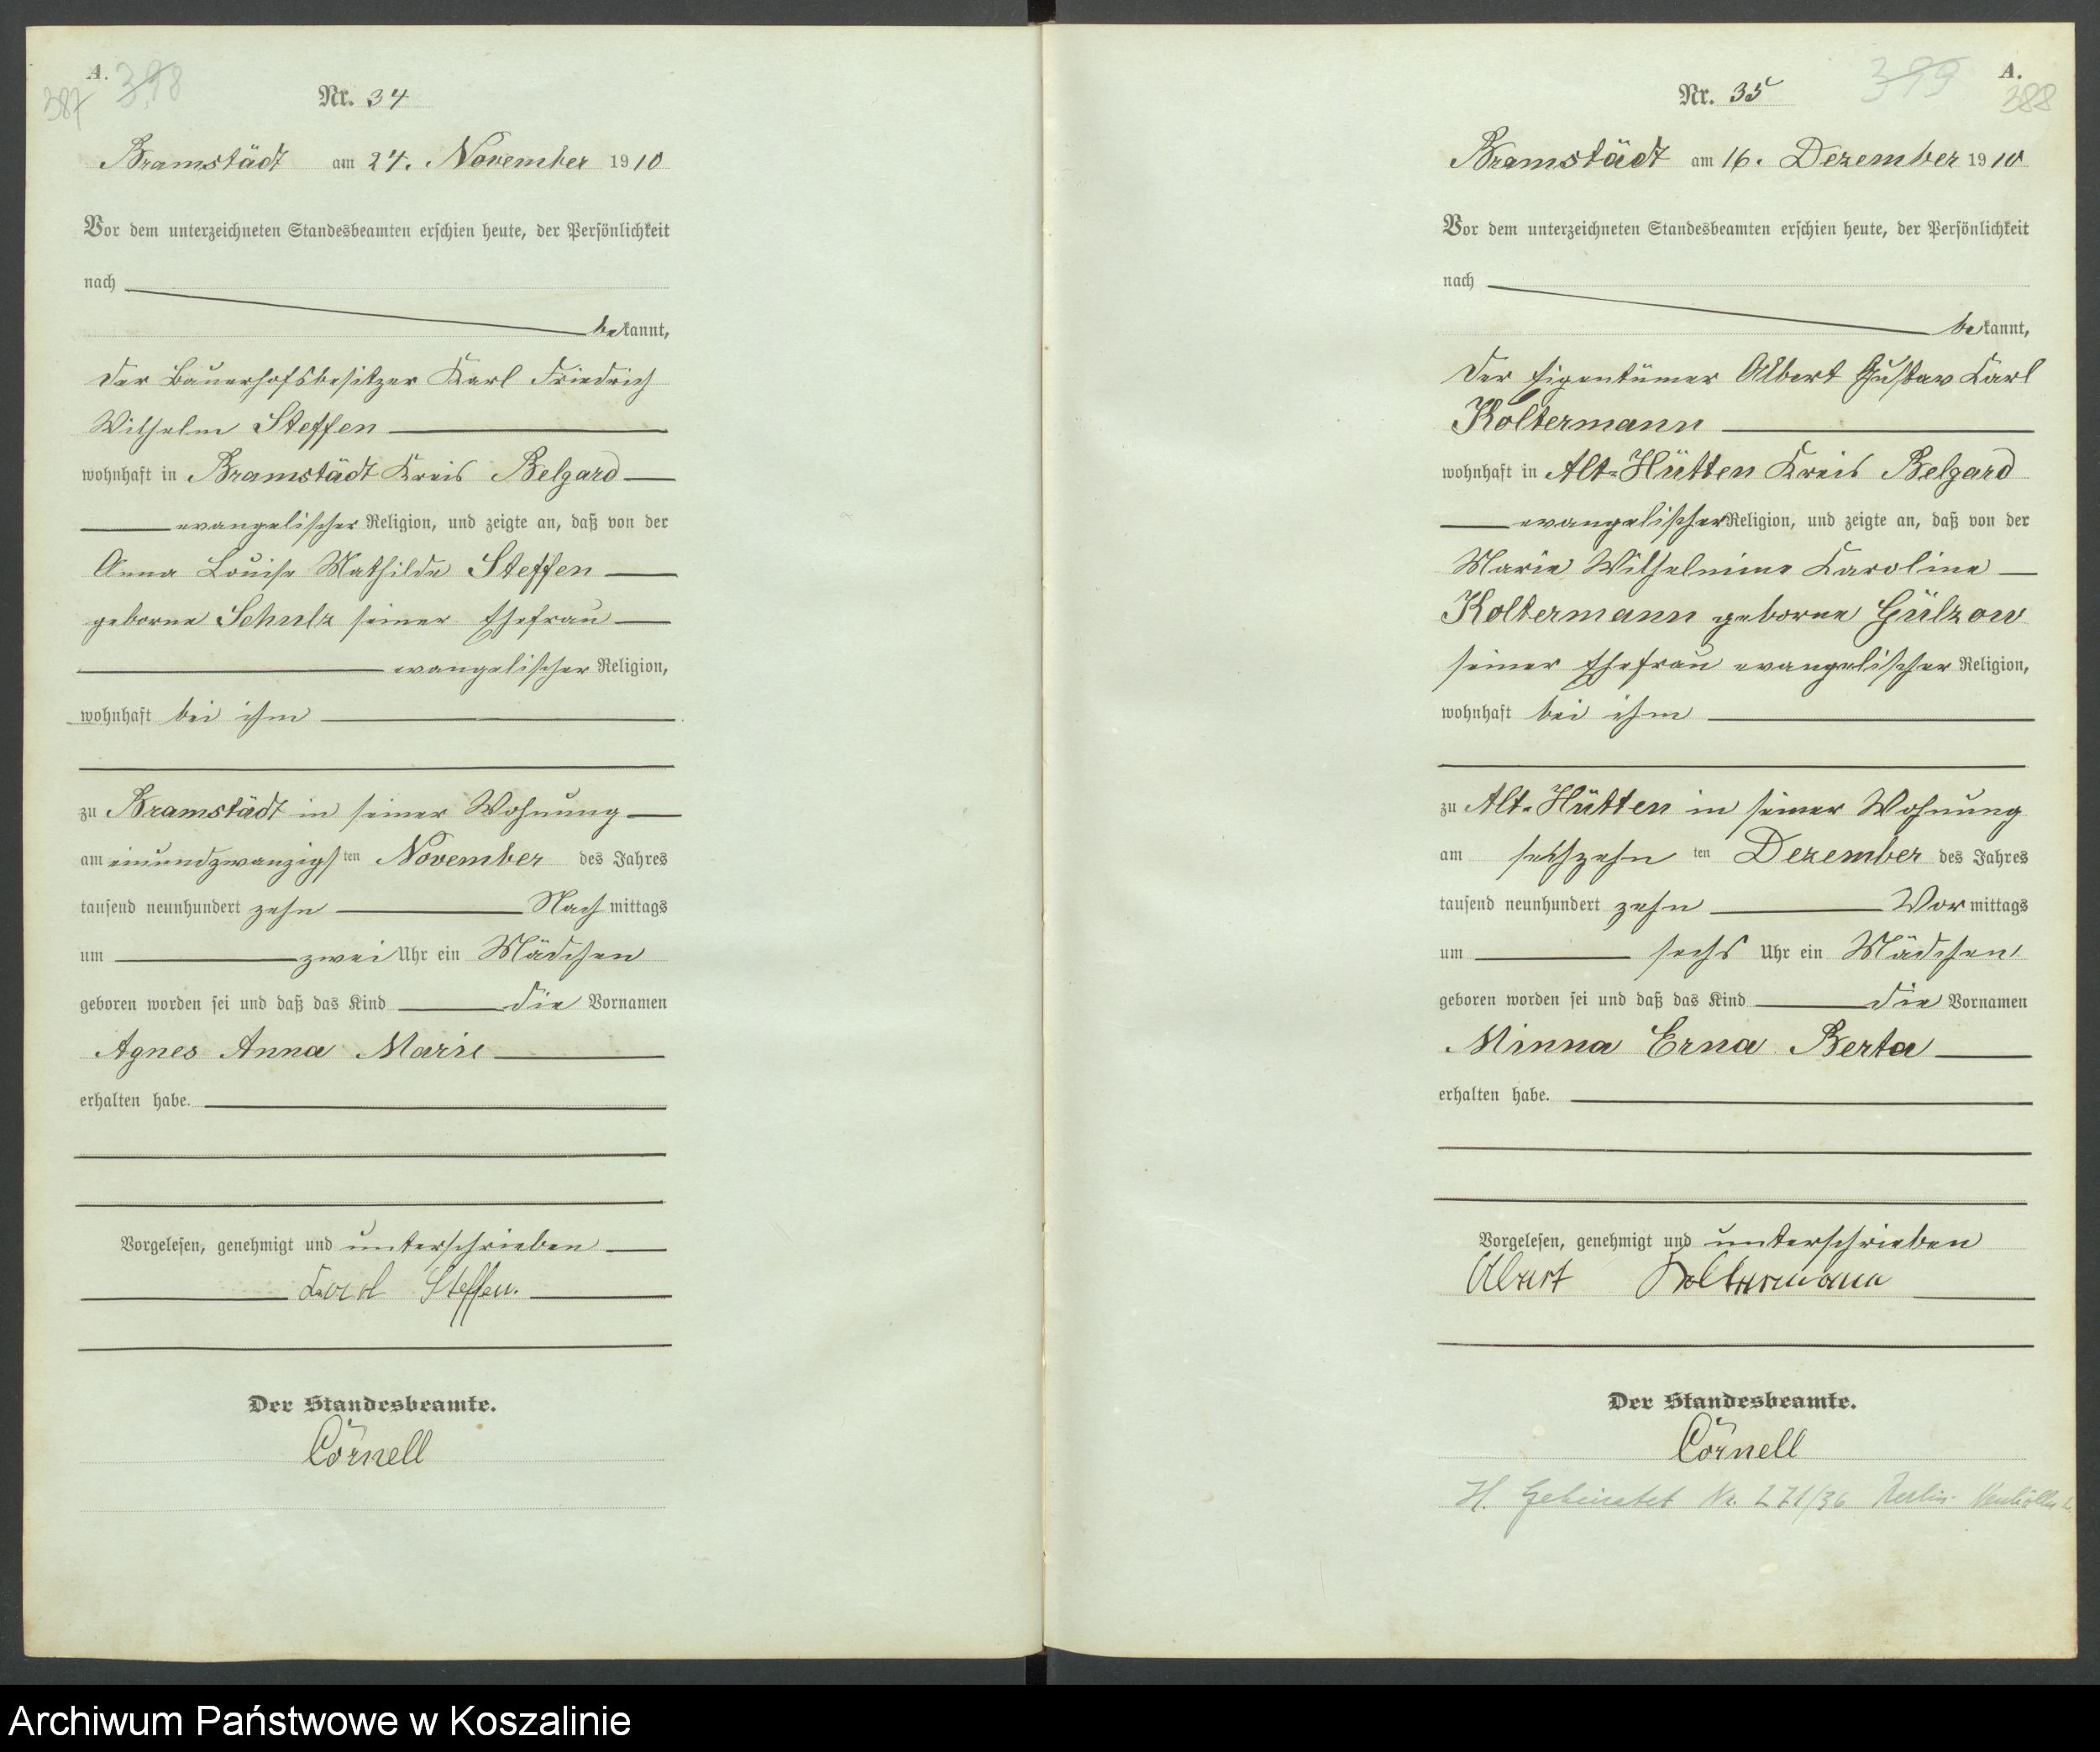 A.
398
387
Nr. 34
Bramstädt am 24. November 1910
Vor dem unterzeichneten Standesbeamten erschien heute, der Persönlichkeit
nach
bekannt,
der Bauerhofsbesitzer Karl Friedrich
Wilhelm Steffen
wohnhaft in Bramstädt Kreis Belgard
evangelischer Religion, und zeigte an, daß von der
Anna Louise Mathilde Steffen
geborne Schulz seiner Ehefrau
evangelischer Religion,
wohnhaft bei ihm
zu Bramstädt in seiner Wohnung
am einundzwanzigsten November des Jahres
tausend neunhundert zehn Nachmittags
um zwei Uhr ein Mädchen
geboren worden sei und daß das Kind die Vornamen
Agnes Anna Marie
erhalten habe.
Vorgelesen, genehmigt und unterschrieben
Karl Steffen.
Der Standesbeamte.
Cörnell
A.
399
388
Nr. 35
Bramstädt am 16. Dezember 1910
Vor dem unterzeichneten Standesbeamten erschien heute, der Persönlichkeit
nach
bekannt,
der Eigentümer Albert Gustav Karl
Koltermann
wohnhaft in Alt-Hütten Kreis Belgard
evangelischer Religion, und zeigte an, daß von der
Marie Wilhelmine Karoline
Koltermann geborne Gülzow
seiner Ehefrau evangelischer Religion,
wohnhaft bei ihm
zu Alt-Hütten in seiner Wohnung
am sechszehn ten Dezember des Jahres
tausend neunhundert zehn Vormittags
um sechs Uhr ein Mädchen
geboren worden sei und daß das Kind die Vornamen
Minna Erna Berta
erhalten habe.
Vorgelesen, genehmigt und unterschrieben
Albert Koltermann
Der Standesbeamte.
Cörnell
H. Geheiratet Nr. 271/36 Berlin-Neukölln
Archiwum Państwowe w Koszalinie